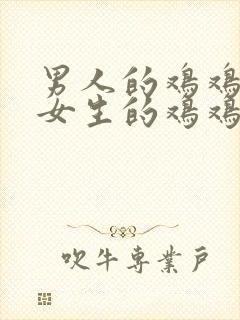 男人的鸡鸡
女生的鸡鸡
吹牛專業戶